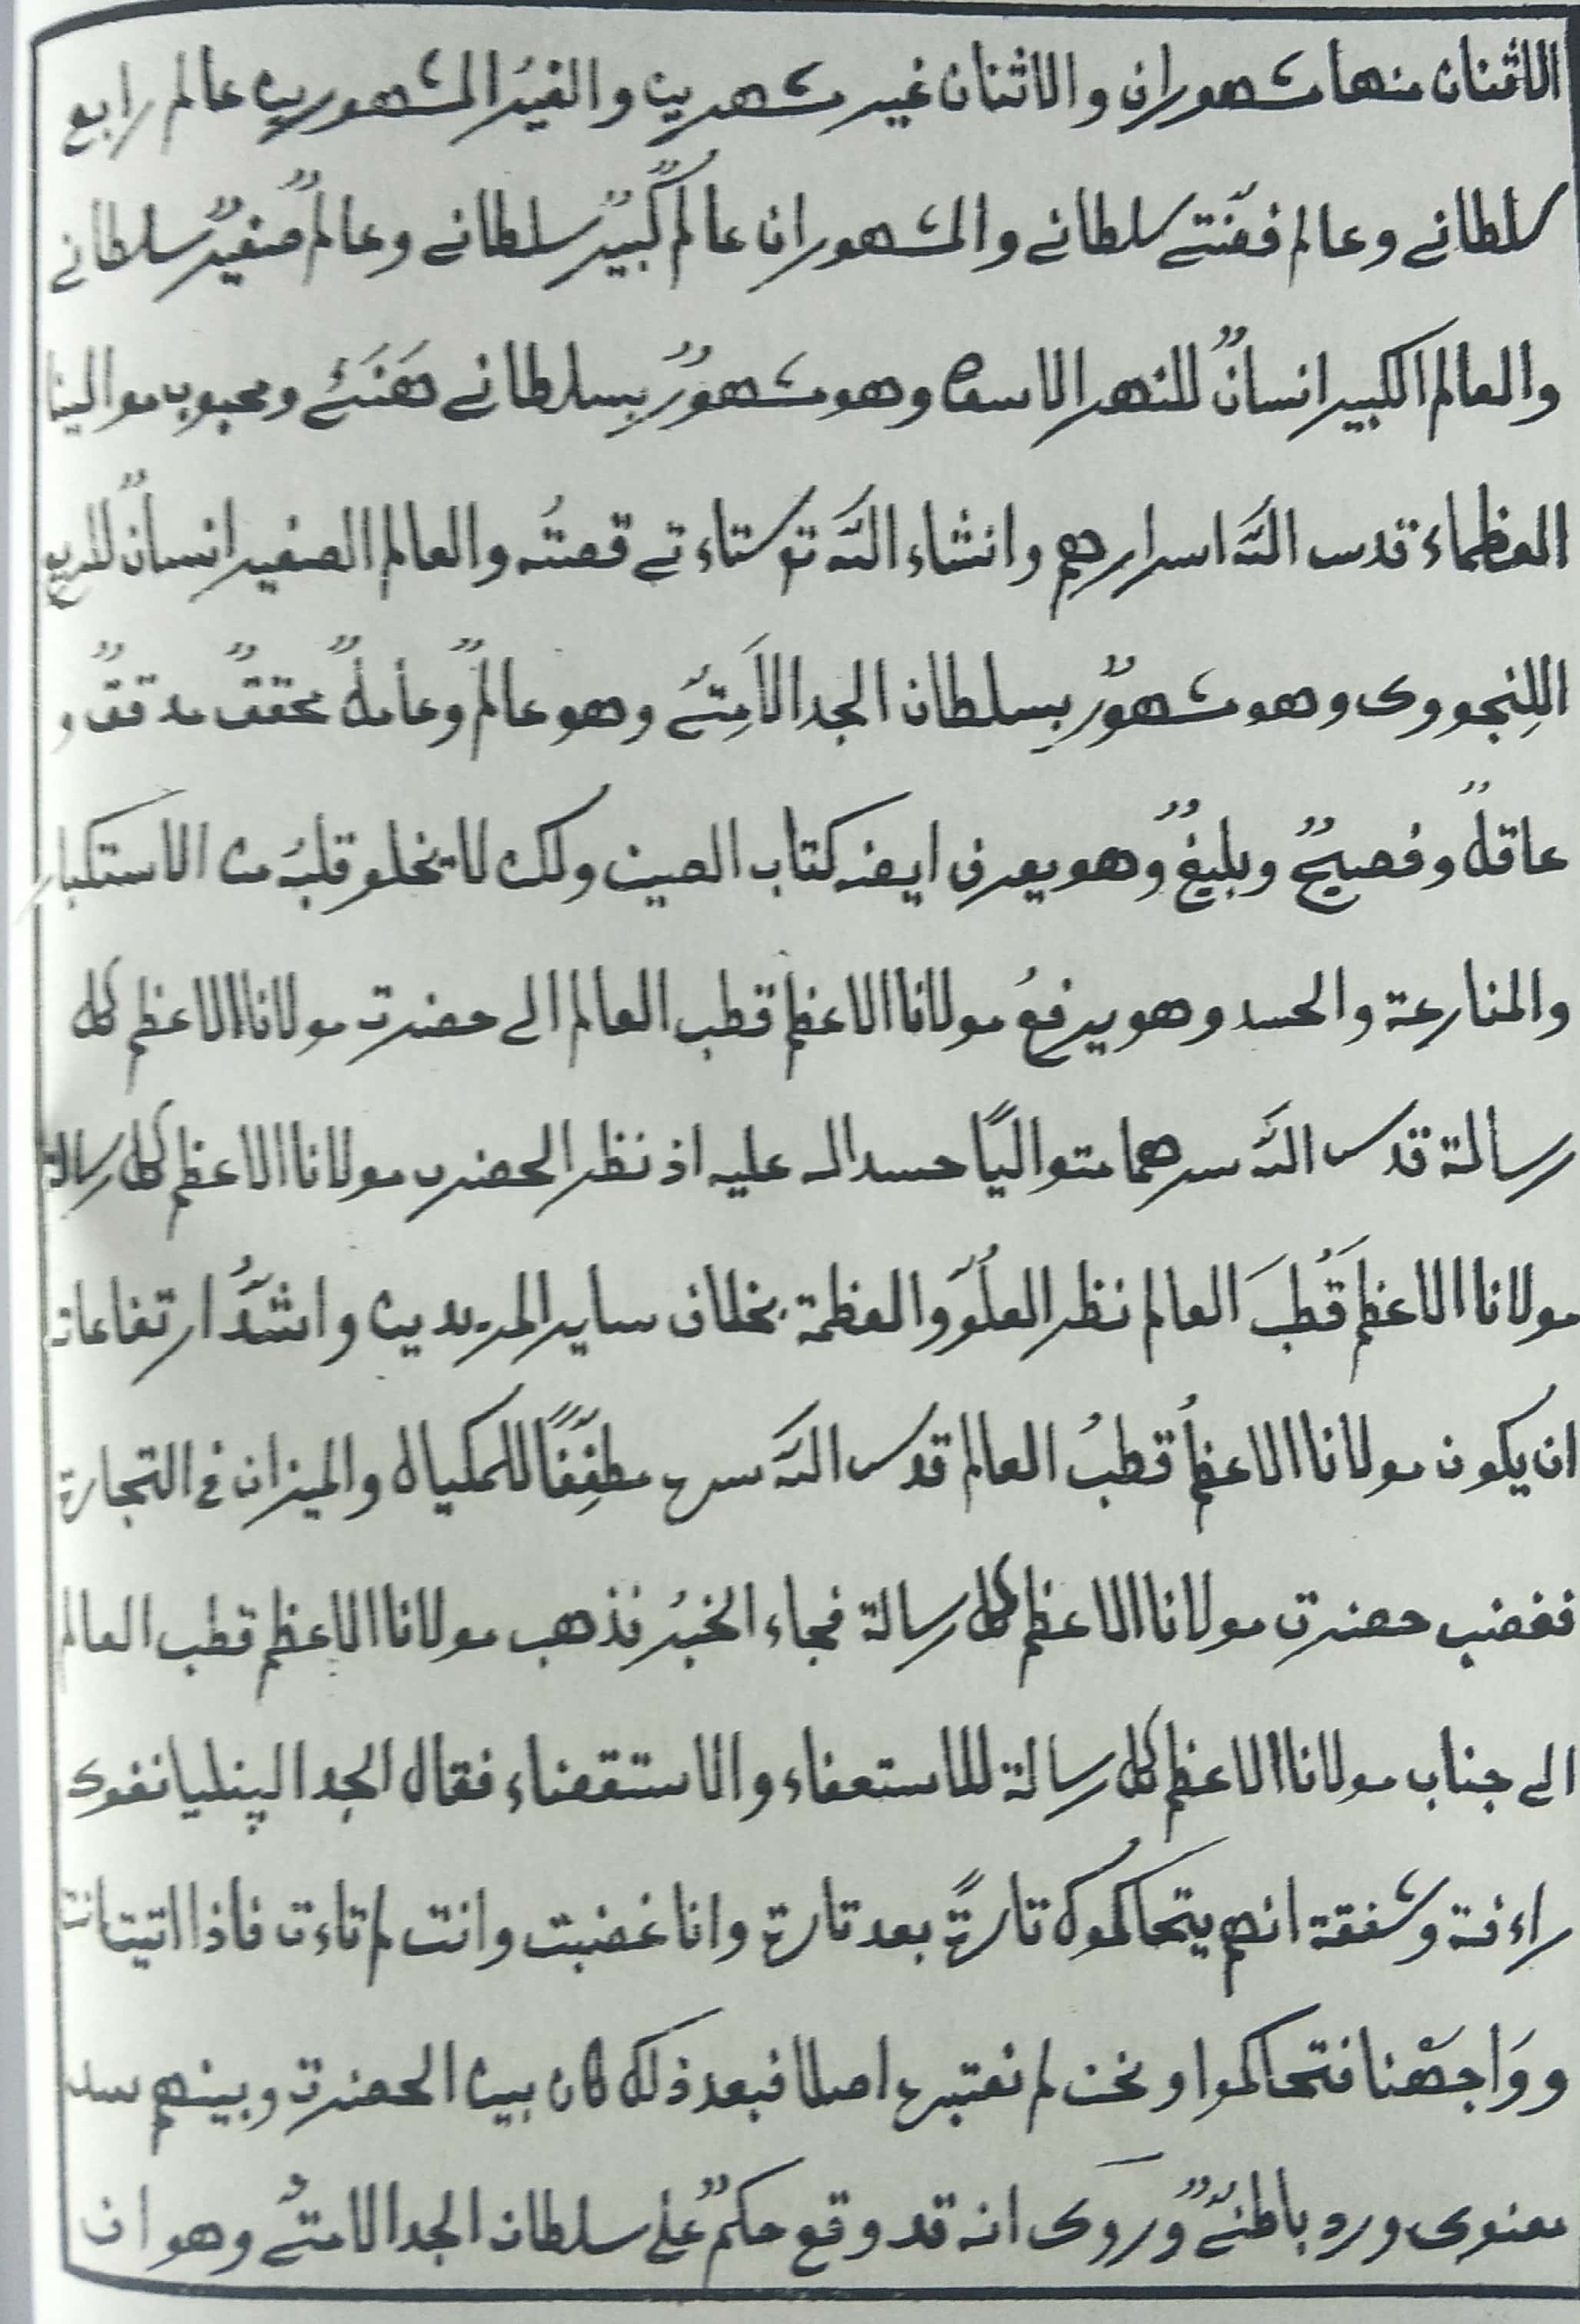 الاثنان منها مشهوران والاثنان غير مشهرين والغير المشهورين عالم رابع
سلطانے وعالم ففنتے سلطانے والمشهوران عالمٌ كبيرٌ سلطانے وعالمٌ صغيرٌ سلطانے
والعالم الكبير انسانٌ للنهر الاسود وهو مشهورٌ بسلطانے هَنَئے ومحبوب موالينا
العظماء قدس اللّٰه اسرارهم وانشاء اللّٰه تع ستاءتے قصتُه والعالم الصغير انسانٌ
اللِنجووى وهو مشهورٌ بسلطان الجد الاَمِتے وهو عالمٌ وعاملٌ محققٌ مدققٌ و
عاقلٌ وفصيحٌ وبليغٌ وهو يعرف ايضہ كتاب الصين ولكن لا يخلو قلبُه من الاستكبار
والمنارعة والحسد وهو يرفعُ مولانا الاعظم قطب العالم الے حضرت مولانا الاعظم كل
رسالة قدس اللّٰه سرهما متواليًا حسدا لہ عليہ اذ نظر الحضرت مولانا الاعظم كل رسالة
مولانا الاعظم قُطبَ العالم نظر العلُوّ والعظمة بخلاف ساير المريدين واشدُّ ارتفاعاتہ
ان يكون مولانا الاعظمُ قطبُ العالم قدس اللّٰه سره مطفِّفًا للمكيال والميزان فے التجارة
فغضب حضرت مولانا الاعظم كل رسالة فجاء الخبرُ فذهب مولانا الاعظم قطب العالم
الے جناب مولانا الاعظم كل رسالة للاستعفاء والاستقضاء فقال الجد الپنليانغوى
راءفة وشفقة انهم يتحاكموك تارةً بعد تارة وانا غضبت وانت لم تاءت فاذا اتيتانت
ووَاجَهْنا فتحاكموا ونحن لم نعتبره اصلا فبعد ذلك كان بين الحضرت وبينهم سد
معنوى ورد باطنےٌ ورُوى انه قد وقع حكمٌ علے سلطان الجد الامتےُ وهو ان